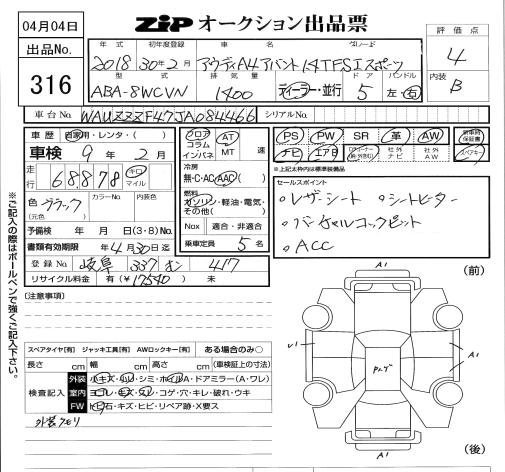 04月04日
出品No.
316
ZiP オークション出品票
評価点
4
内装
B
年式 初年度登録 車名 グレード
2018 30年2月 アウディA4アバント1.4TFSIスポーツ
型式 排気量 ドア ハンドル
ABA-8WCVN 1400 ディーラー・並行 5 左・右
車台No. WAUZZZF47JA084466 シリアルNo.
車歴 自家用・レンタ・( )
車検 9年2月
走行 68,878 キロ マイル
色 ブラック カラーNo. 内装色
(元色)
予備検 年 月 日(3・8)No.
書類有効期限 年4月30日迄
登録No. 岐阜 337 む 417
リサイクル料金 有(¥17540) 未
フロア コラム インパネ
AT MT 速
冷房
無・C・AC・AAC( )
燃料
ガソリン・軽油・電気・その他( )
Nox 適合・非適合
乗車定員 5名
PS PW SR 革 AW 新車時保証書
ナビ エアB 社外ナビ 社外AW スペアキー
※上記太枠内は標準装備品
セールスポイント
・レザーシート ・シートヒーター
・バーチャルコックピット
・ACC
[注意事項]
スペアタイヤ[有] ジャッキ工具[有] AWロックキー[有] ある場合のみ○
長さ cm 幅 cm 高さ cm (車検証上の寸法)
検査記入
外装 小キズ・小凹・シミ・ホイルA・ドアミラー(A・ワレ)
室内 ヨゴレ・キズ・スレ・コゲ・穴・キレ・破れ・ウキ
FW 飛石・キズ・ヒビ・リペア跡・X要ス
外装クモリ
※ご記入の際はボールペンで強くご記入下さい。
(前)
A1
A1
A1
A1
(後)